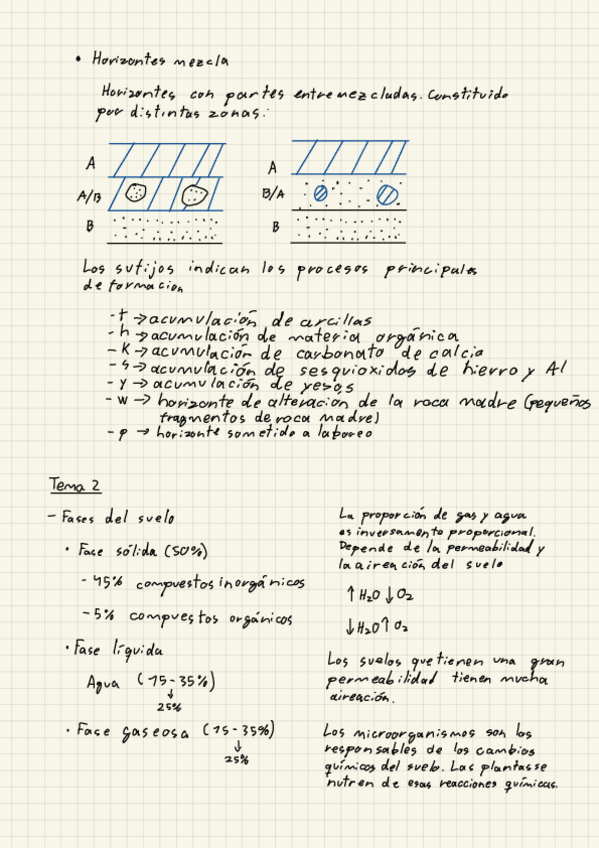 • Horizontes mezcla
Horizontes con partes entremezcladas. Constituido
por distintas zonas:
A
A/B
B
A
B/A
B
Los sufijos indican los procesos principales
de formación
-t → acumulación de arcillas
-h → acumulación de materia orgánica
-K → acumulación de carbonato de calcio
-s → acumulación de sesquioxidos de hierro y Al
-y → acumulación de yesos
-w → horizonte de alteración de la roca madre (pequeños
fragmentos de roca madre)
-p → horizonte sometido a laboreo
Tema 2
- Fases del suelo
• Fase sólida (50%)
- 45% compuestos inorgánicos
- 5% compuestos orgánicos
• Fase líquida
Agua (15-35%)
↓
25%
• Fase gaseosa (15-35%)
↓
25%
La proporción de gas y agua
es inversamente proporcional.
Depende de la permeabilidad y
la aireación del suelo
↑ H₂O ↓ O₂
↓ H₂O ↑ O₂
Los suelos que tienen una gran
permeabilidad tienen mucha
aireación.
Los microorganismos son los
responsables de los cambios
químicos del suelo. Las plantas se
nutren de esas reacciones químicas.